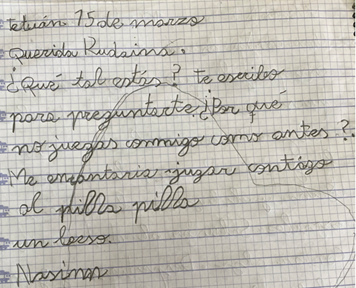 tetuán 15 de marzo
Querida Rudaina.
¿Qué tal estás? te escribo
para preguntarte ¿Por qué
no juegas conmigo como antes?
Me encantaria jugar contigo
al pilla pilla
un beso.